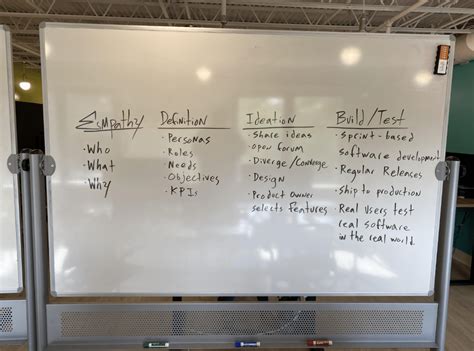 Empathy
· Who
· What
· Why
Definition
· Personas
· Roles
· Needs
· Objectives
· KPIs
Ideation
· Share ideas
· open forum
· Diverge / Converge
· Design
· Product Owner
selects features
Build / Test
· Sprint-based
software development
· Regular Releases
· Ship to production
· Real Users test
real software
in the real world.